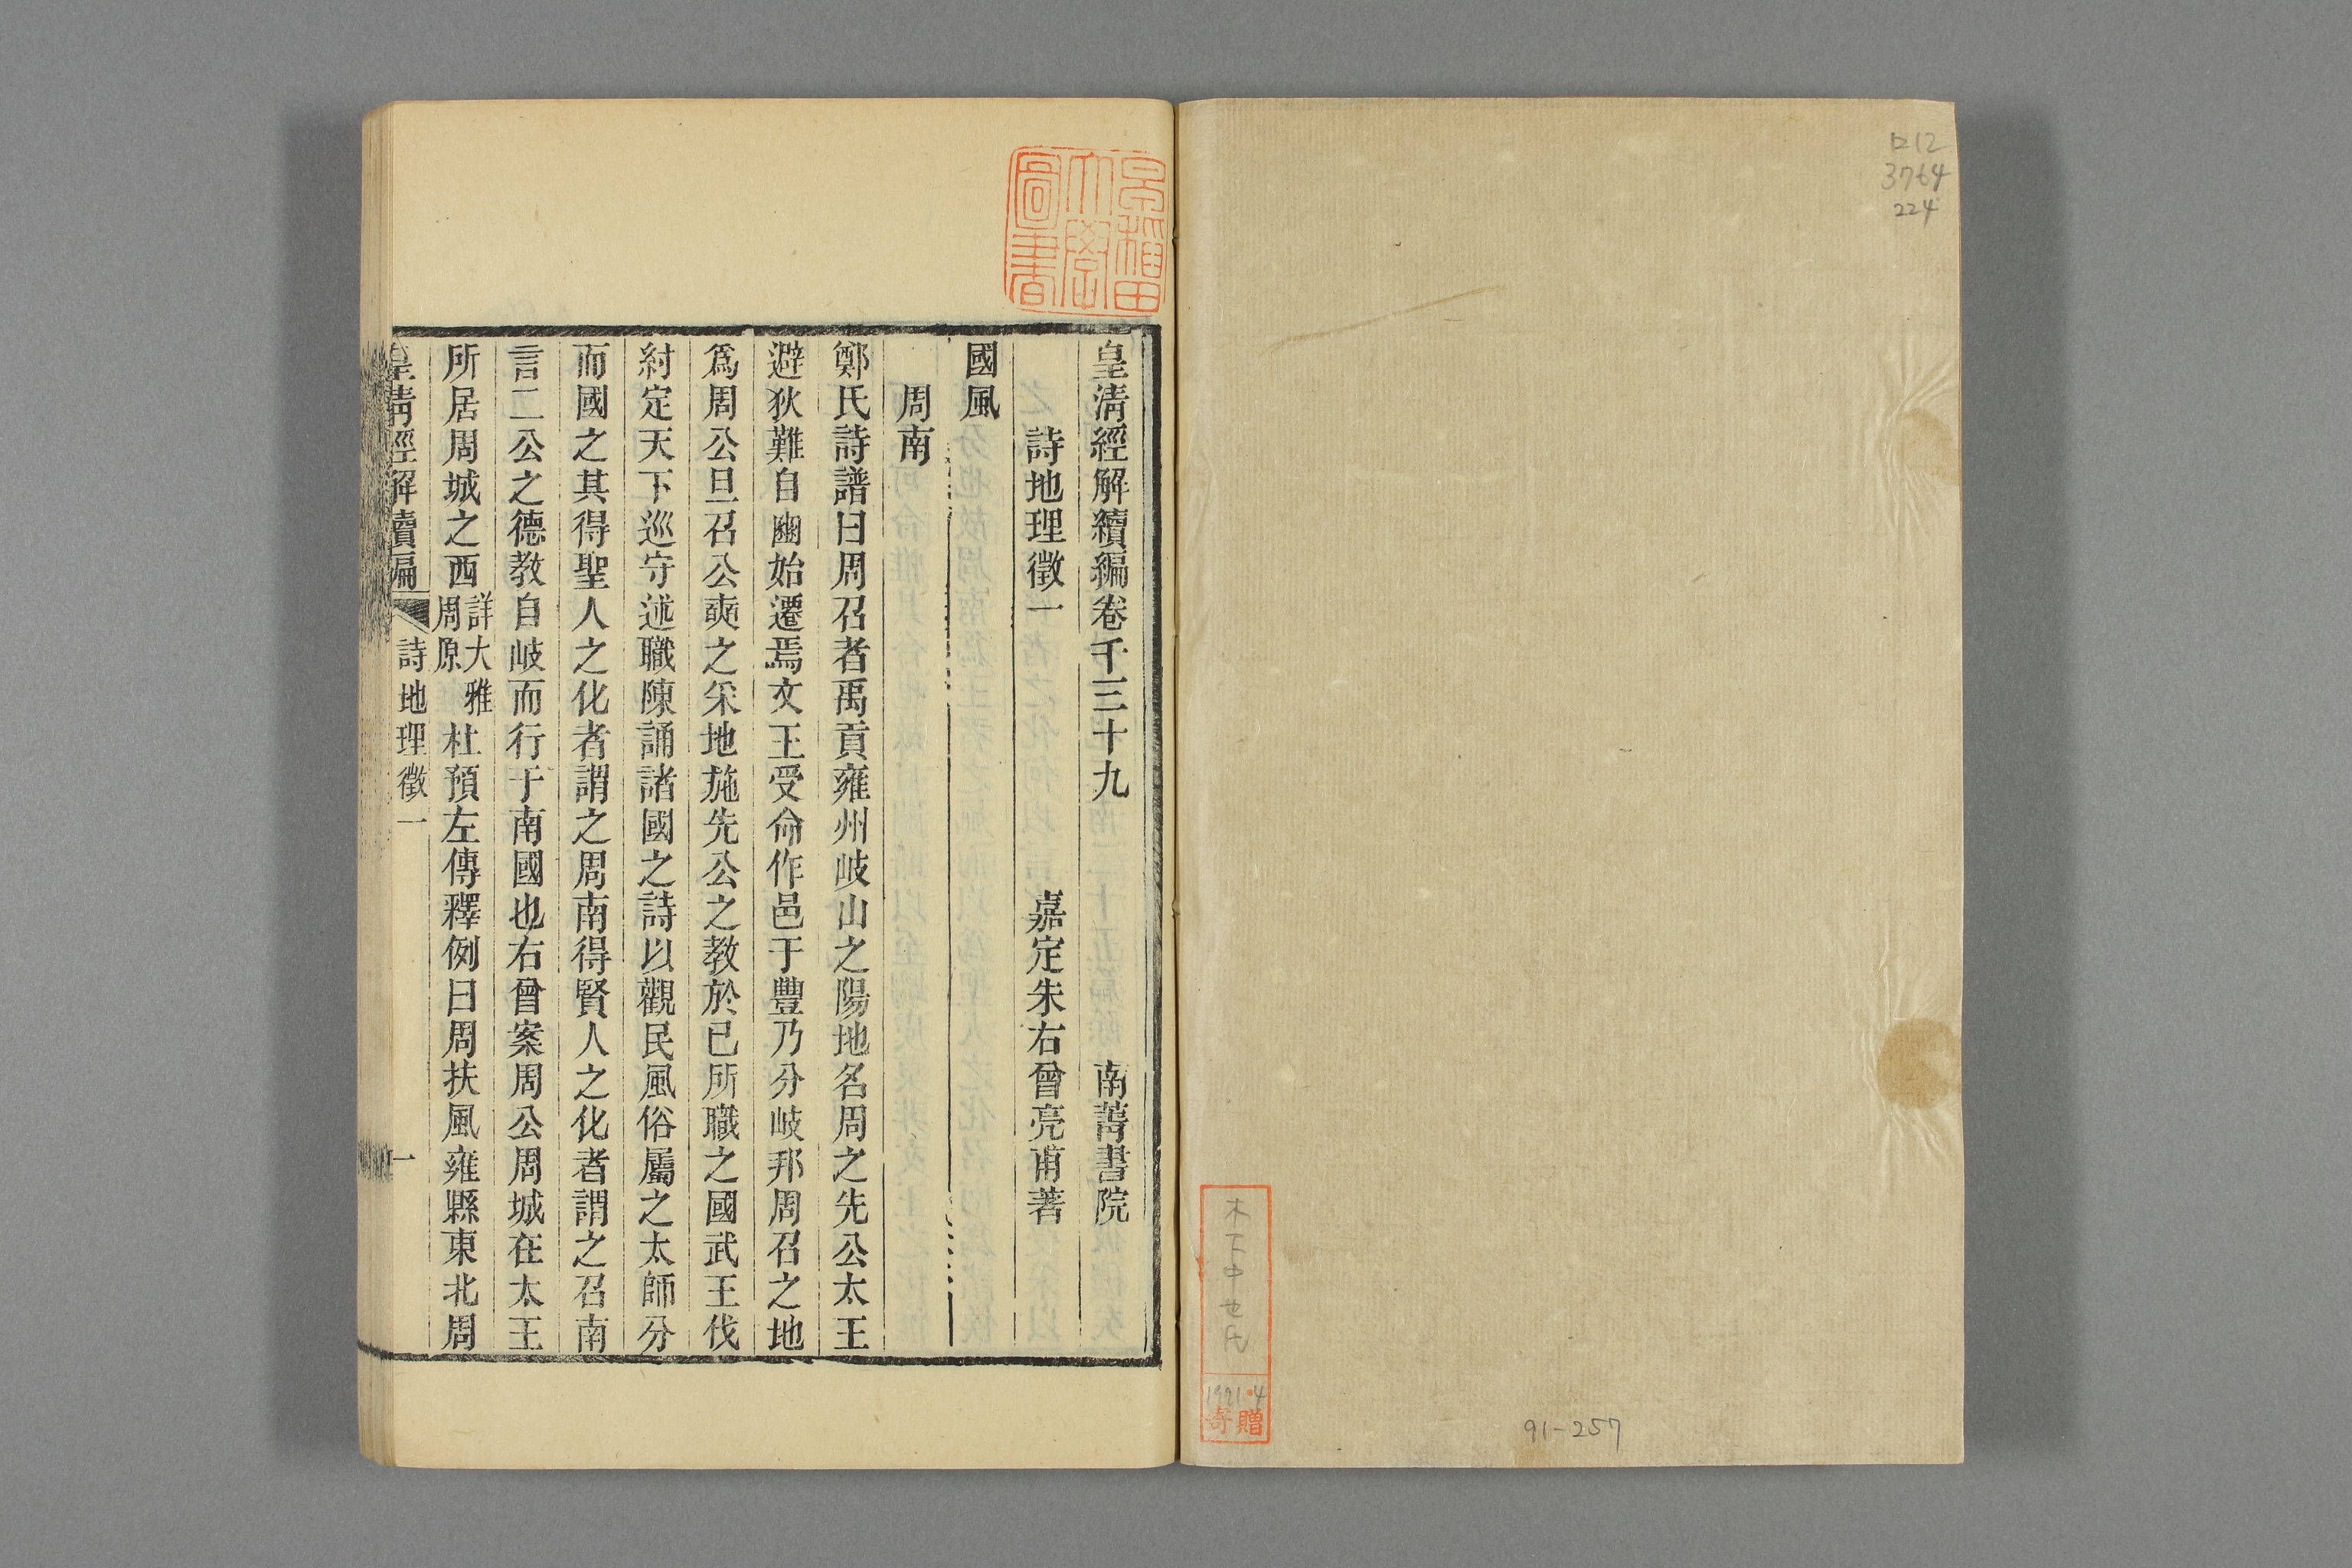 ロ12
3764
224
木下中也氏
1921.4
寄贈
91-257
早稲田大學圖書
皇清經解續編卷千三十九
南菁書院
詩地理徵一
嘉定朱右曾亮甫著
國風
周南
鄭氏詩譜曰周召者禹貢雍州岐山之陽地名周之先公太王
避狄難自豳始遷焉文王受命作邑于豐乃分岐邦周召之地
爲周公旦召公奭之采地施先公之教於已所職之國武王伐
紂定天下巡守述職陳誦諸國之詩以觀民風俗屬之太師分
而國之其得聖人之化者謂之周南得賢人之化者謂之召南
言二公之德教自岐而行于南國也右曾案周公周城在太王
所居周城之西詳大雅周原杜預左傳釋例曰周扶風雍縣東北周
皇清經解續編
詩地理徵一
一